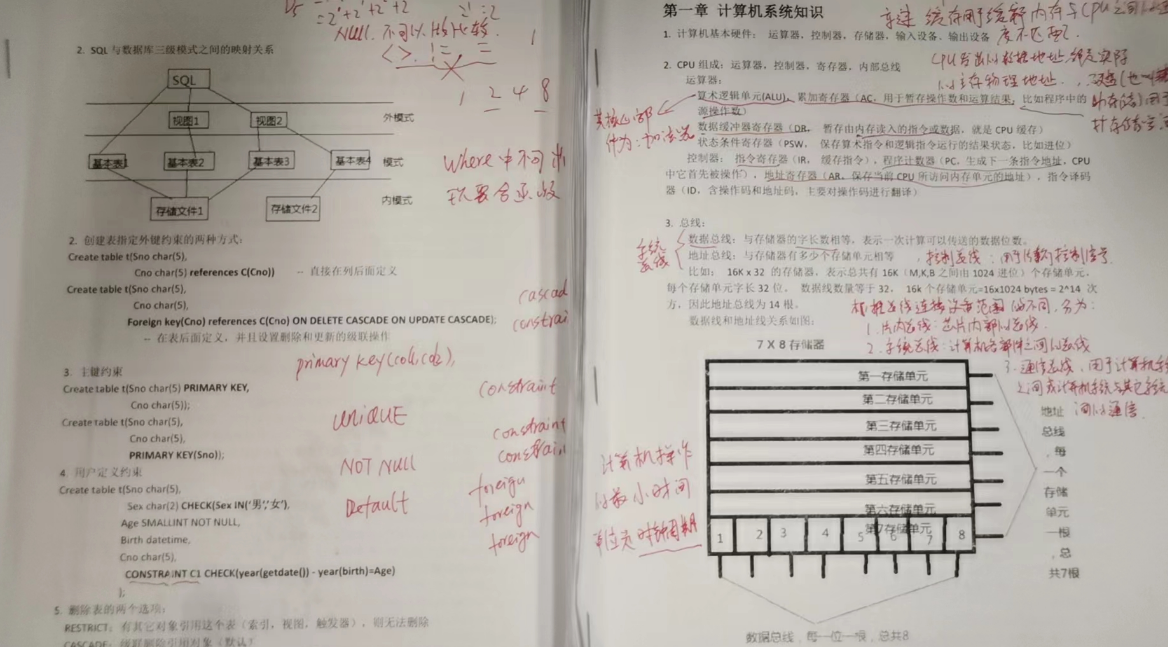 NULL 不可以
< > ! = =
1 2 4 8
2. SQL 与数据库三级模式之间的映射关系
SQL
视图1 视图2 外模式
基本表1 基本表2 基本表3 基本表4 模式
存储文件1 存储文件2 内模式
where 中不可
2. 创建表指定外键约束的两种方式:
Create table t(Sno char(5),
Cno char(5) references C(Cno)) -- 直接在列后面定义
Create table t(Sno char(5),
Cno char(5),
Foreign key(Cno) references C(Cno) ON DELETE CASCADE ON UPDATE CASCADE);
-- 在表后面定义,并且设置删除和更新的级联操作
cascad
constrai
primary key(col1,col2),
3. 主键约束
Create table t(Sno char(5) PRIMARY KEY,
Cno char(5));
Create table t(Sno char(5),
Cno char(5),
PRIMARY KEY(Sno));
constraint
UNIQUE
constraint
constrain
NOT NULL
4. 用户定义约束
Create table t(Sno char(5),
Sex char(2) CHECK(Sex IN('男','女'),
Age SMALLINT NOT NULL,
Birth datetime,
Cno char(5),
CONSTRAINT C1 CHECK(year(getdate()) - year(birth)=Age)
);
Default
foreign
foreign
foreign
5. 删除表的两个选项:
RESTRICT: 有其它对象引用这个表(索引,视图,触发器),则无法删除
CASCADE: 级联删除引用对象(默认)
第一章 计算机系统知识
1. 计算机基本硬件: 运算器,控制器,存储器,输入设备,输出设备
2. CPU 组成:运算器,控制器,寄存器,内部总线
运算器:
算术逻辑单元(ALU),累加寄存器(AC,用于暂存操作数和运算结果,比如程序中的
源操作数)
数据缓冲器寄存器(DR, 暂存由内存读入的指令或数据,就是 CPU 缓存)
状态条件寄存器(PSW, 保存算术指令和逻辑指令运行的结果状态,比如进位)
控制器: 指令寄存器(IR, 缓存指令),程序计数器(PC,生成下一条指令地址,CPU
中它首先被操作),地址寄存器(AR,保存当前 CPU 所访问内存单元的地址),指令译码
器(ID,含操作码和地址码,主要对操作码进行翻译)
3. 总线:
数据总线:与存储器的字长数相等,表示一次计算可以传送的数据位数。
地址总线:与存储器有多少个存储单元相等
,控制总线:用于传输控制信号
系统
总线
比如: 16K x 32 的存储器,表示总共有 16K(M,K,B 之间由 1024 进位)个存储单元,
每个存储单元字长 32 位, 数据线数量等于 32, 16k 个存储单元=16x1024 bytes = 2^14 次
方,因此地址总线为 14 根。
数据线和地址线关系如图:
根据总线连接设备范围的不同,分为:
1. 片内总线:芯片内部的总线.
2. 系统总线:计算机各部件之间的总线
3. 通信总线,用于计算机
间的通信
7 X 8 存储器
第一存储单元
第二存储单元
第三存储单元
第四存储单元
第五存储单元
第六存储单元
第7存储单元
1 2 3 4 5 6 7 8
地址
总线
,每
一个
存储
单元
一根
,总
共7根
计算机操作
的最小时间
单位是时钟周期
数据总线,每一位一根,总共8